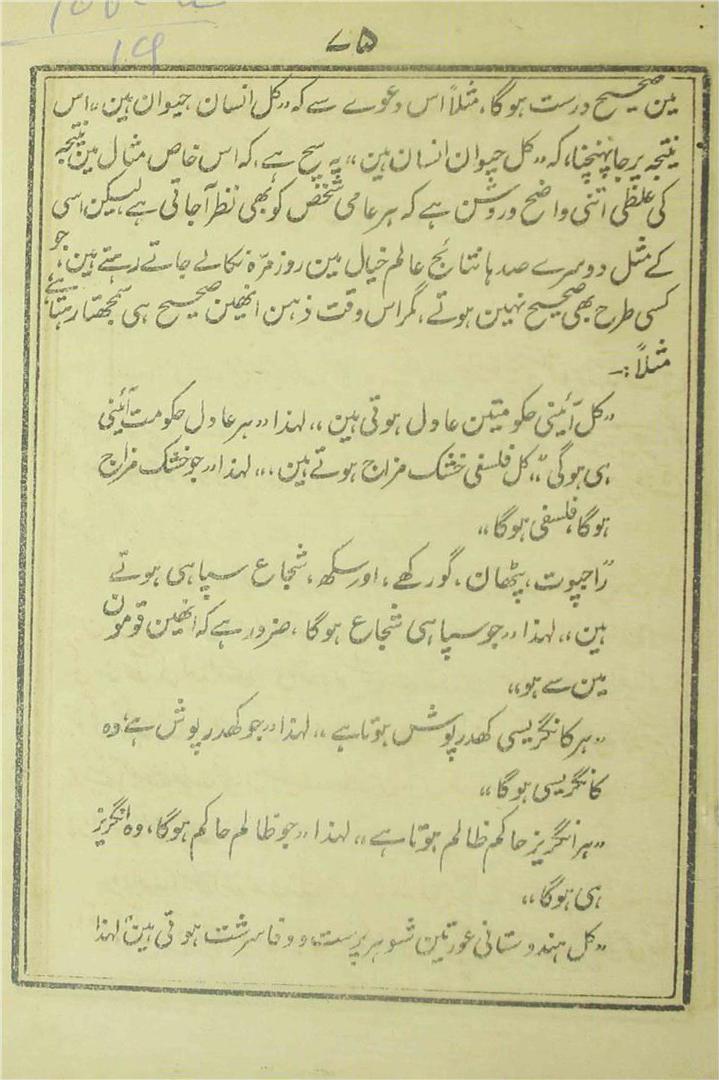 ۷۵
مین صحیح درست ہوگا، مثلاً اس دعوے سے کہ ،،کل انسان حیوان ہین،، اس
نتیجہ پر جا پہنچنا، کہ ،،کل حیوان انسان ہین،، یہ سچ ہے، کہ اس خاص مثال مین نتیجہ
کی غلطی اتنی واضح و روشن ہے کہ ہر عامی شخص کو بھی نظر آجاتی ہے لیکن اسی
کے مثل دوسرے صدہا نتائج عالم خیال مین روز مرّہ نکالے جاتے رہتے ہین، جو
کسی طرح بھی صحیح نہین ہوتے، مگر اس وقت ذہن انھین صحیح ہی سمجھتا رہتا ہے
مثلاً:۔
،،کل آئینی حکومتین عادل ہوتی ہین،، لہذا ،،ہر عادل حکومت آئینی
ہی ہوگی،، ،،کل فلسفی خشک مزاج ہوتے ہین،، لہذا ،،جو خشک مزاج
ہوگا، فلسفی ہوگا،،
،،راجپوت، پٹھان، گورکھے، اور سکھ، شجاع سپاہی ہوتے
ہین،، لہذا ،،جو سپاہی شجاع ہوگا، ضرور ہے کہ انھین قومون
مین سے ہو،،
،،ہر کانگریسی کھدر پوش ہوتا ہے،، لہذا ،،جو کھدر پوش ہے، وہ
کانگریسی ہوگا،،
،،ہر انگریز حاکم ظالم ہوتا ہے،، لہذا ،،جو ظالم حاکم ہوگا، وہ انگریز
ہی ہوگا،،
،،کل ہندوستانی عورتین شوہر پرست و وفا سرشت ہوتی ہین،، لہذا